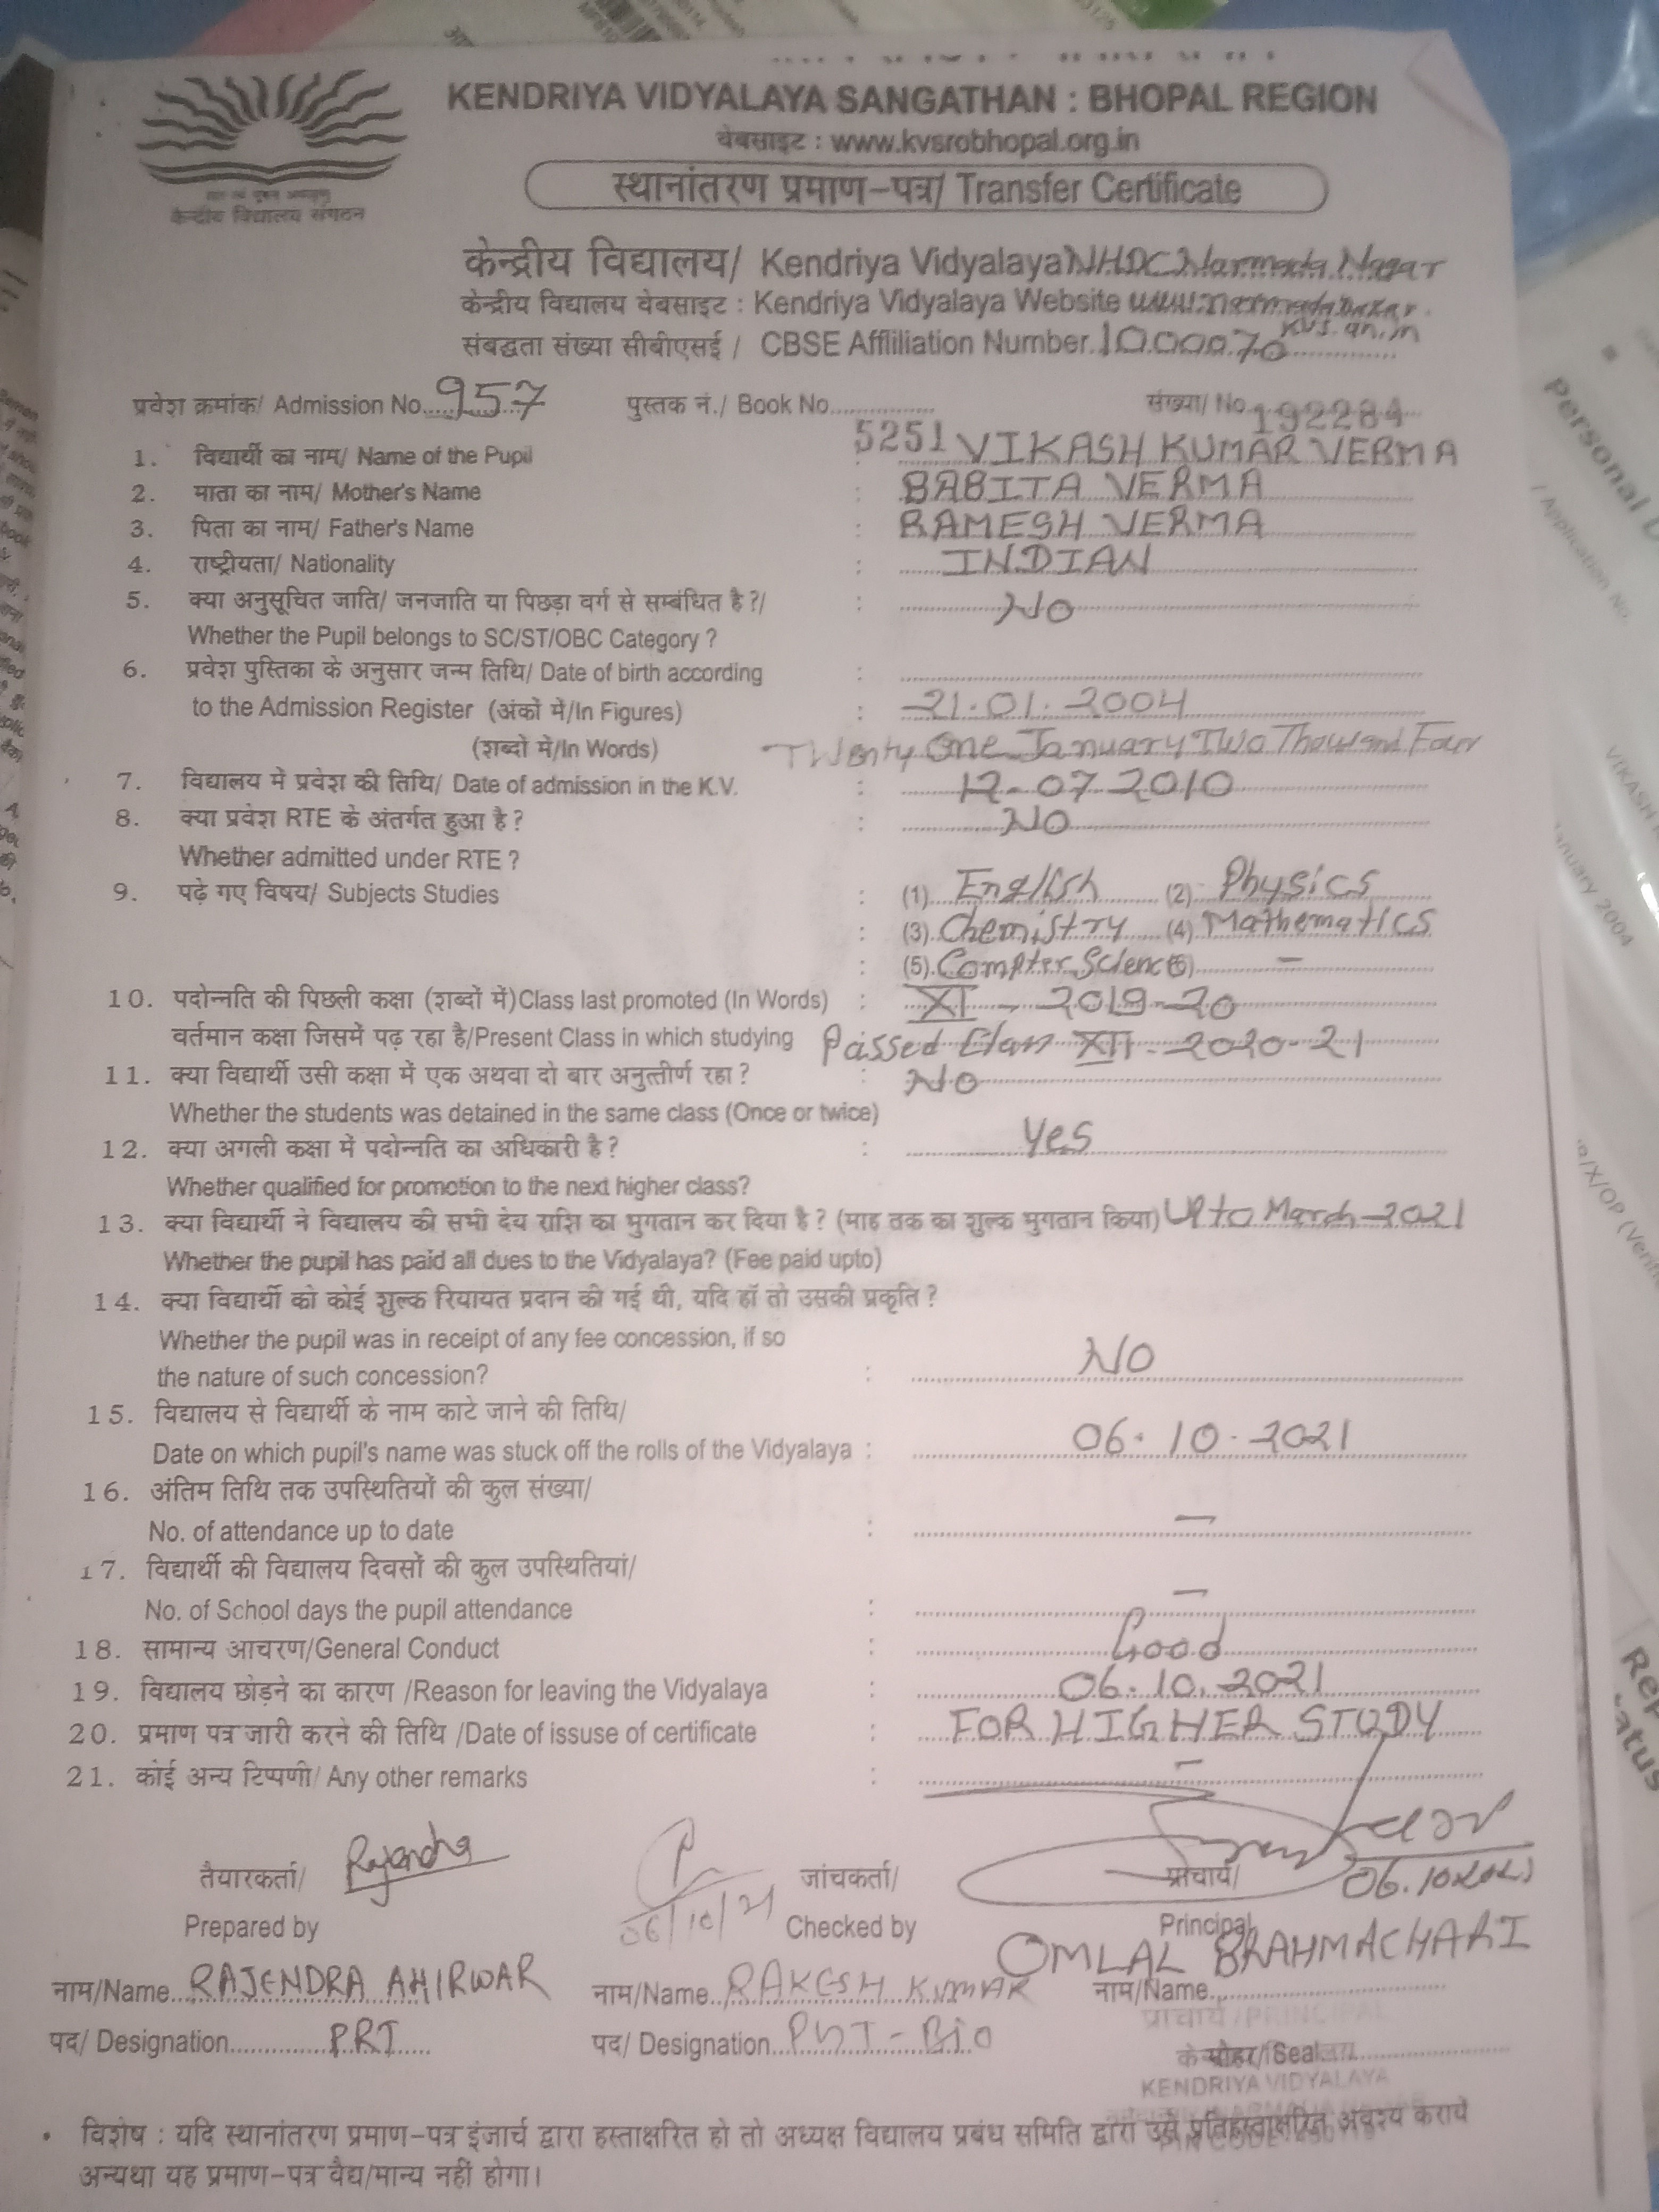 KENDRIYA VIDYALAYA SANGATHAN : BHOPAL REGION
वेबसाइट : www.kvsrobhopal.org.in
स्थानांतरण प्रमाण-पत्र/ Transfer Certificate
केन्द्रीय विद्यालय संगठन
केन्द्रीय विद्यालय/ Kendriya Vidyalaya NHDC Narmada Nagar
केन्द्रीय विद्यालय वेबसाइट : Kendriya Vidyalaya Website
संबद्धता संख्या सीबीएसई / CBSE Affliliation Number 1000070
प्रवेश क्रमांक/ Admission No. 957 पुस्तक नं./ Book No. 5251 संख्या/ No. 192284
1. विद्यार्थी का नाम/ Name of the Pupil : VIKASH KUMAR VERMA
2. माता का नाम/ Mother's Name : BABITA VERMA
3. पिता का नाम/ Father's Name : RAMESH VERMA
4. राष्ट्रीयता/ Nationality : INDIAN
5. क्या अनुसूचित जाति/ जनजाति या पिछड़ा वर्ग से सम्बंधित है ?/ : NO
Whether the Pupil belongs to SC/ST/OBC Category ?
6. प्रवेश पुस्तिका के अनुसार जन्म तिथि/ Date of birth according :
to the Admission Register (अंकों में/In Figures) : 21.01.2004
(शब्दों में/In Words) Twenty One January Two Thousand Four
7. विद्यालय में प्रवेश की तिथि/ Date of admission in the K.V. : 12-07-2010
8. क्या प्रवेश RTE के अंतर्गत हुआ है ? : NO
Whether admitted under RTE ?
9. पढ़े गए विषय/ Subjects Studies : (1) English (2) Physics
: (3) Chemistry (4) Mathematics
: (5) Compter Science (6) -
10. पदोन्नति की पिछली कक्षा (शब्दों में) Class last promoted (In Words) : XI - 2019-20
वर्तमान कक्षा जिसमें पढ़ रहा है/Present Class in which studying Passed Class XII - 2020-21
11. क्या विद्यार्थी उसी कक्षा में एक अथवा दो बार अनुत्तीर्ण रहा ? : NO
Whether the students was detained in the same class (Once or twice)
12. क्या अगली कक्षा में पदोन्नति का अधिकारी है ? : Yes
Whether qualified for promotion to the next higher class?
13. क्या विद्यार्थी ने विद्यालय की सभी देय राशि का भुगतान कर दिया है ? (माह तक का शुल्क भुगतान किया) Upto March-2021
Whether the pupil has paid all dues to the Vidyalaya? (Fee paid upto)
14. क्या विद्यार्थी को कोई शुल्क रियायत प्रदान की गई थी, यदि हाँ तो उसकी प्रकृति ?
Whether the pupil was in receipt of any fee concession, if so
the nature of such concession? : NO
15. विद्यालय से विद्यार्थी के नाम काटे जाने की तिथि/
Date on which pupil's name was stuck off the rolls of the Vidyalaya : 06.10.2021
16. अंतिम तिथि तक उपस्थितियों की कुल संख्या/
No. of attendance up to date : -
17. विद्यार्थी की विद्यालय दिवसों की कुल उपस्थितियां/
No. of School days the pupil attendance : -
18. सामान्य आचरण/General Conduct : Good
19. विद्यालय छोड़ने का कारण /Reason for leaving the Vidyalaya : 06.10.2021
20. प्रमाण पत्र जारी करने की तिथि /Date of issuse of certificate : FOR HIGHER STUDY
21. कोई अन्य टिप्पणी/ Any other remarks : -
तैयारकर्ता/ Rajendra जांचकर्ता/ प्राचार्य/ 06.10.2021
Prepared by 06/10/21 Checked by Principal
OMLAL BRAHMACHARI
नाम/Name RAJENDRA AHIRWAR नाम/Name RAKESH KUMAR नाम/Name
प्राचार्य /PRINCIPAL
पद/ Designation PRT पद/ Designation PGT-Bio मोहर/ Seal
KENDRIYA VIDYALAYA
विशेष : यदि स्थानांतरण प्रमाण-पत्र इंजार्च द्वारा हस्ताक्षरित हो तो अध्यक्ष विद्यालय प्रबंध समिति द्वारा उसे प्रतिहस्ताक्षरित अवश्य करायें
अन्यथा यह प्रमाण-पत्र वैद्य/मान्य नहीं होगा।
Personal
/ Application No.
VIKASH
January 2004